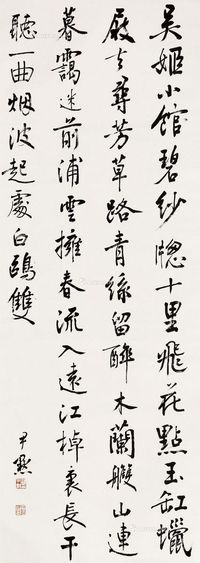 吴姬小館碧紗牕十里飛花點玉缸蠟
屐去尋芳草路青絲留醉木蘭艭山連
暮靄迷前浦雲擁春流入遠江棹裏長干
聽一曲烟波起處白鷗雙
尹默